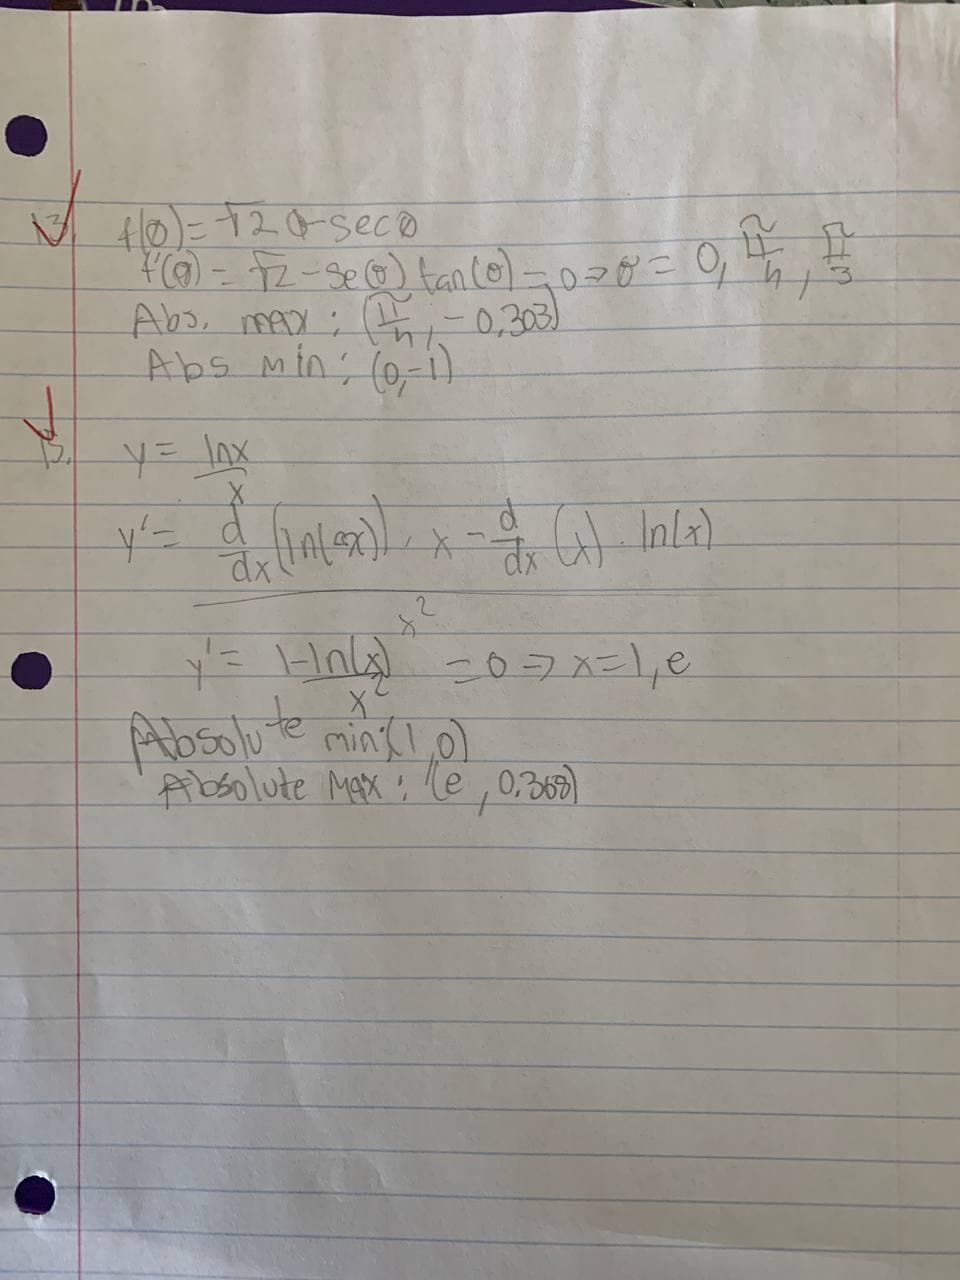 13
f(θ)=√2 θ-secθ
f'(θ) = √2 - se(θ) tan(θ) = 0 => θ = 0, π/4, π/3
Abs. max : (π/4, -0.303)
Abs min : (0,-1)
15.
y = lnx/x
y' = (d/dx (ln(x)) · x - d/dx (x) · ln(x))/x²
y' = 1-ln(x)/x² = 0 => x=1, e
Absolute min:(1,0)
Absolute Max : (e, 0.368)